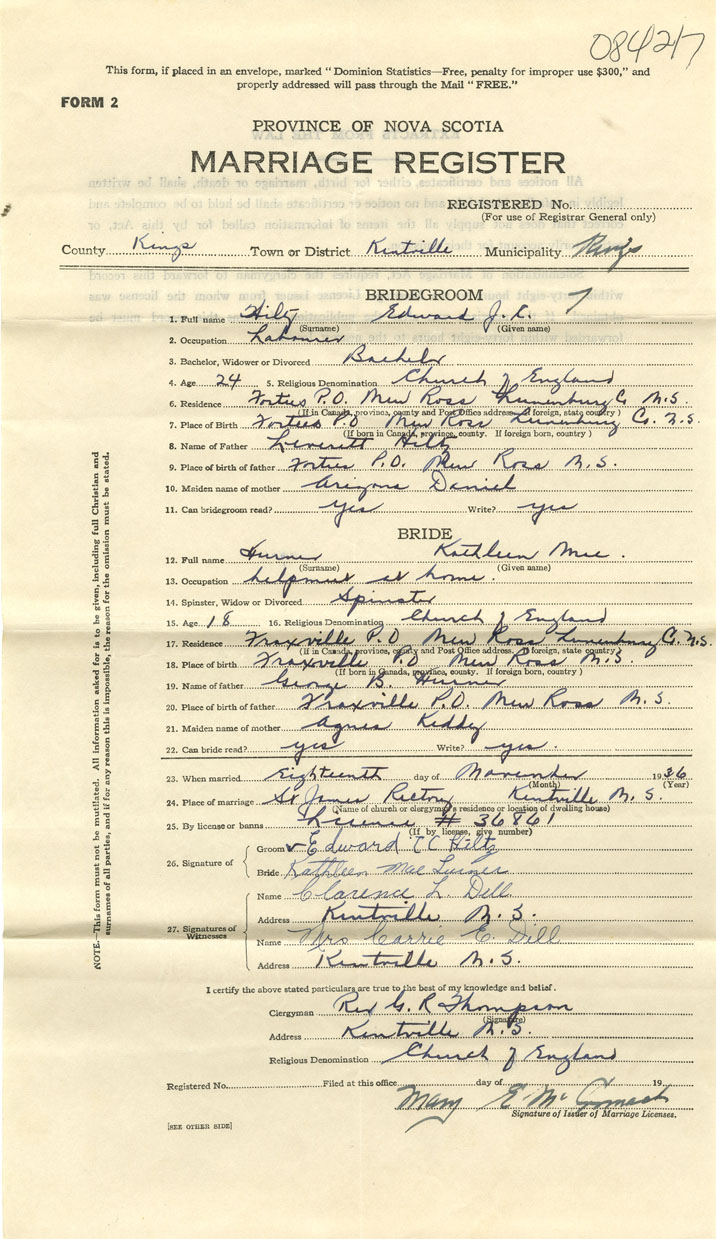 084217
This form, if placed in an envelope, marked "Dominion Statistics—Free, penalty for improper use $300," and
properly addressed will pass through the Mail "FREE."
FORM 2
PROVINCE OF NOVA SCOTIA
MARRIAGE REGISTER
REGISTERED No.
(For use of Registrar General only)
County Kings Town or District Kentville Municipality Kings
BRIDEGROOM
1. Full name Hiltz Edward J. C.
(Surname) (Given name)
2. Occupation Labourer
3. Bachelor, Widower or Divorced Bachelor
4. Age 24 5. Religious Denomination Church of England
6. Residence Forties P.O. New Ross Lunenburg Co N.S.
(If in Canada, province, county and Post Office address. If foreign, state country)
7. Place of Birth Forties P.O New Ross Lunenburg Co. N.S.
(If born in Canada, province, county. If foreign born, country)
8. Name of Father Leverett Hiltz
9. Place of birth of father Forties P.O. New Ross N.S.
10. Maiden name of mother Arizona Daniel
11. Can bridegroom read? yes Write? yes
BRIDE
12. Full name Kathleen Mae.
(Surname) (Given name)
13. Occupation helpmut at home.
14. Spinster, Widow or Divorced Spinster
15. Age 18 16. Religious Denomination Church of England
17. Residence Fraxville P.O New Ross Lunenburg Co. N.S.
(If in Canada, province, county and Post Office address. If foreign, state country)
18. Place of birth Fraxville P.O New Ross N.S.
(If born in Canada, province, county. If foreign born, country)
19. Name of father George B.
20. Place of birth of father Fraxville P.O. New Ross N.S.
21. Maiden name of mother Agnes Keddy
22. Can bride read? yes Write? yes.
23. When married Eighteenth day of November 1936
(Month) (Year)
24. Place of marriage St James Rectory Kentville N.S.
(Name of church or clergyman's residence or location of dwelling house)
25. By license or banns License # 36861
(If by license, give number)
26. Signature of
Groom Edward Hiltz
Bride Kathleen Mae
27. Signatures of Witnesses
Name Clarence L. Dell
Address Kentville N.S.
Name Mrs Carrie E. Dell
Address Kentville N.S.
I certify the above stated particulars are true to the best of my knowledge and belief.
Clergyman Rev G. R Thompson
(Signature)
Address Kentville N.S.
Religious Denomination Church of England
Registered No. Filed at this office day of 19
Mary E. McCormack
Signature of Issuer of Marriage Licenses.
[SEE OTHER SIDE]
NOTE.—This form must not be mutilated. All information asked for is to be given, including full Christian and
surnames of all parties, and if for any reason this is impossible, the reason for the omission must be stated.